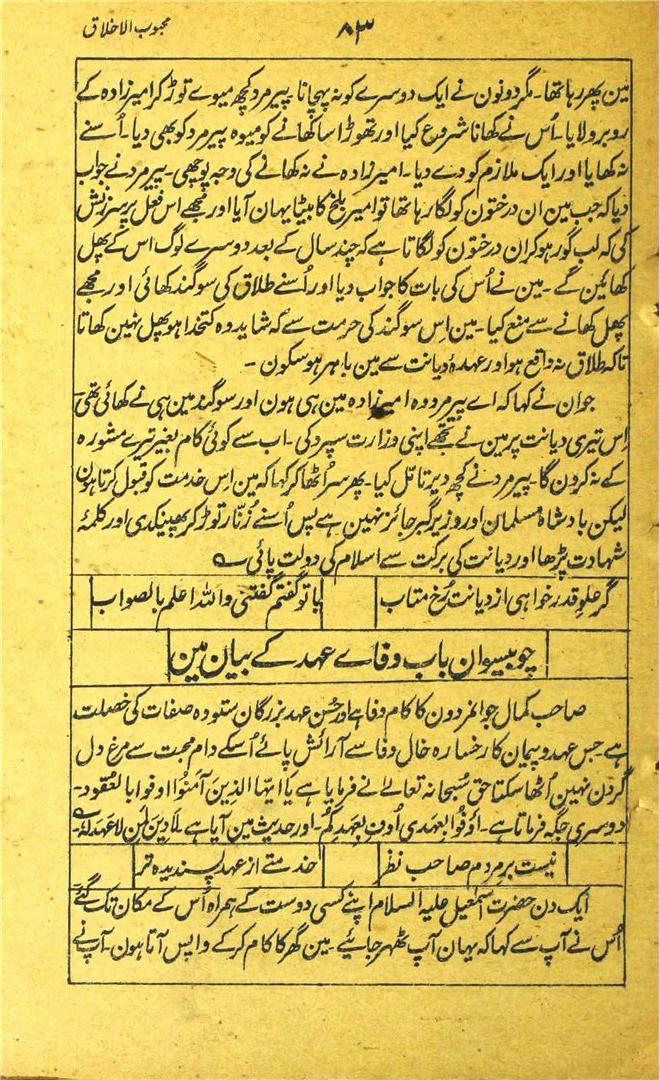 محبوب الاخلاق
۸۳
مین پھر رہا تھا۔ مگر دونون نے ایک دوسرے کو نہ پہچانا پیر مرد کچھ میوے توڑ کر امیرزادہ کے
روبرو لایا۔ اُس نے کھانا شروع کیا اور تھوڑا سا کھانے کو میوہ پیر مرد کو بھی دیا۔ اُسنے
نہ کھایا اور ایک ملازم کو دے دیا۔ امیرزادہ نے نہ کھانے کی وجہ پوچھی۔ پیر مرد نے جواب
دیا کہ جب مین ان درختون کو لگا رہا تھا تو امیر بلخ کا بیٹا یہان آیا اور مجھے اس فعل پر سرزنش
کی کہ لب گور ہو کر ان درختون کو لگاتا ہے کہ چند سال کے بعد دوسرے لوگ اس کے پھل
کھائین گے ۔ مین نے اُس کی بات کا جواب دیا اور اُسنے طلاق کی سوگند کھائی اور مجھے
پھل کھانے سے منع کیا۔ مین اِس سوگند کی حرمت سے کہ شاید وہ کتخدا ہو پھل نہین کھاتا
تاکہ طلاق نہ واقع ہو اور عہدۂ دیانت سے مین باہر ہو سکون ۔
جوان نے کہا کہ اے پیر مرد وہ امیرزادہ مین ہی ہون اور سوگند مین ہی نے کھائی تھی
اِس تیری دیانت پر مین نے تجھے اپنی وزارت سپرد کی ۔ اب سے کوئی کام بغیر تیرے مشورہ
کے نہ کرون گا۔ پیر مرد نے کچھ دیر تامّل کیا۔ پھر سر اُٹھا کر کہا کہ مین اِس خدمت کو قبول کرتا ہون
لیکن بادشاہ مسلمان اور وزیر گبر جائز نہین ہے پس اُسنے زُنّار توڑ کر پھینکدی اور کلمۂ
شہادت پڑھا اور دیانت کی برکت سے اسلام کی دولت پائی ؎
گر علو قدر خواہی از دیانت رُخ متاب
با تو گفتم گفتنی واللہ اعلم بالصواب
چوبیسوان باب وفاے عہد کے بیان مین
صاحب کمال جوانمردون کا کام وفا ہے اور حُسن عہد بزرگان ستودہ صفات کی خصلت
ہے جس عہد و پیمان کا رخسارہ خال وفا سے آرائش پائے اُسکے دام محبت سے مرغ دل
گردن نہین اُٹھا سکتا حق سُبحانہ تعالےٰ نے فرمایا ہے یا ایہا الذین آمنوا اوفوا بالعقود۔
دوسری جگہ فرماتا ہے۔ اَوْفُوا بعہدی اُوفِ بِعَہدِکُم۔ اور حدیث مین آیا ہے۔ لا دِین لِمن لا عَہدَ لہٗ ؎
نیست بر مردم صاحب نظر
خدمتے از عہد پسندیدہ تر
ایک دن حضرت اسمٰعیل علیہ السلام اپنے کسی دوست کے ہمراہ اُس کے مکان تک گئے
اُس نے آپ سے کہا کہ یہان آپ ٹھہر جائیے ۔ مین گھر کا کام کر کے واپس آتا ہون۔ آپ نے